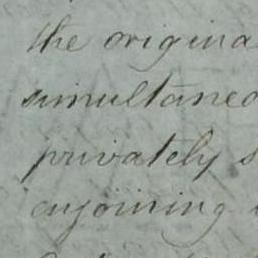 the origina
simultaneo
privately s
enjoining